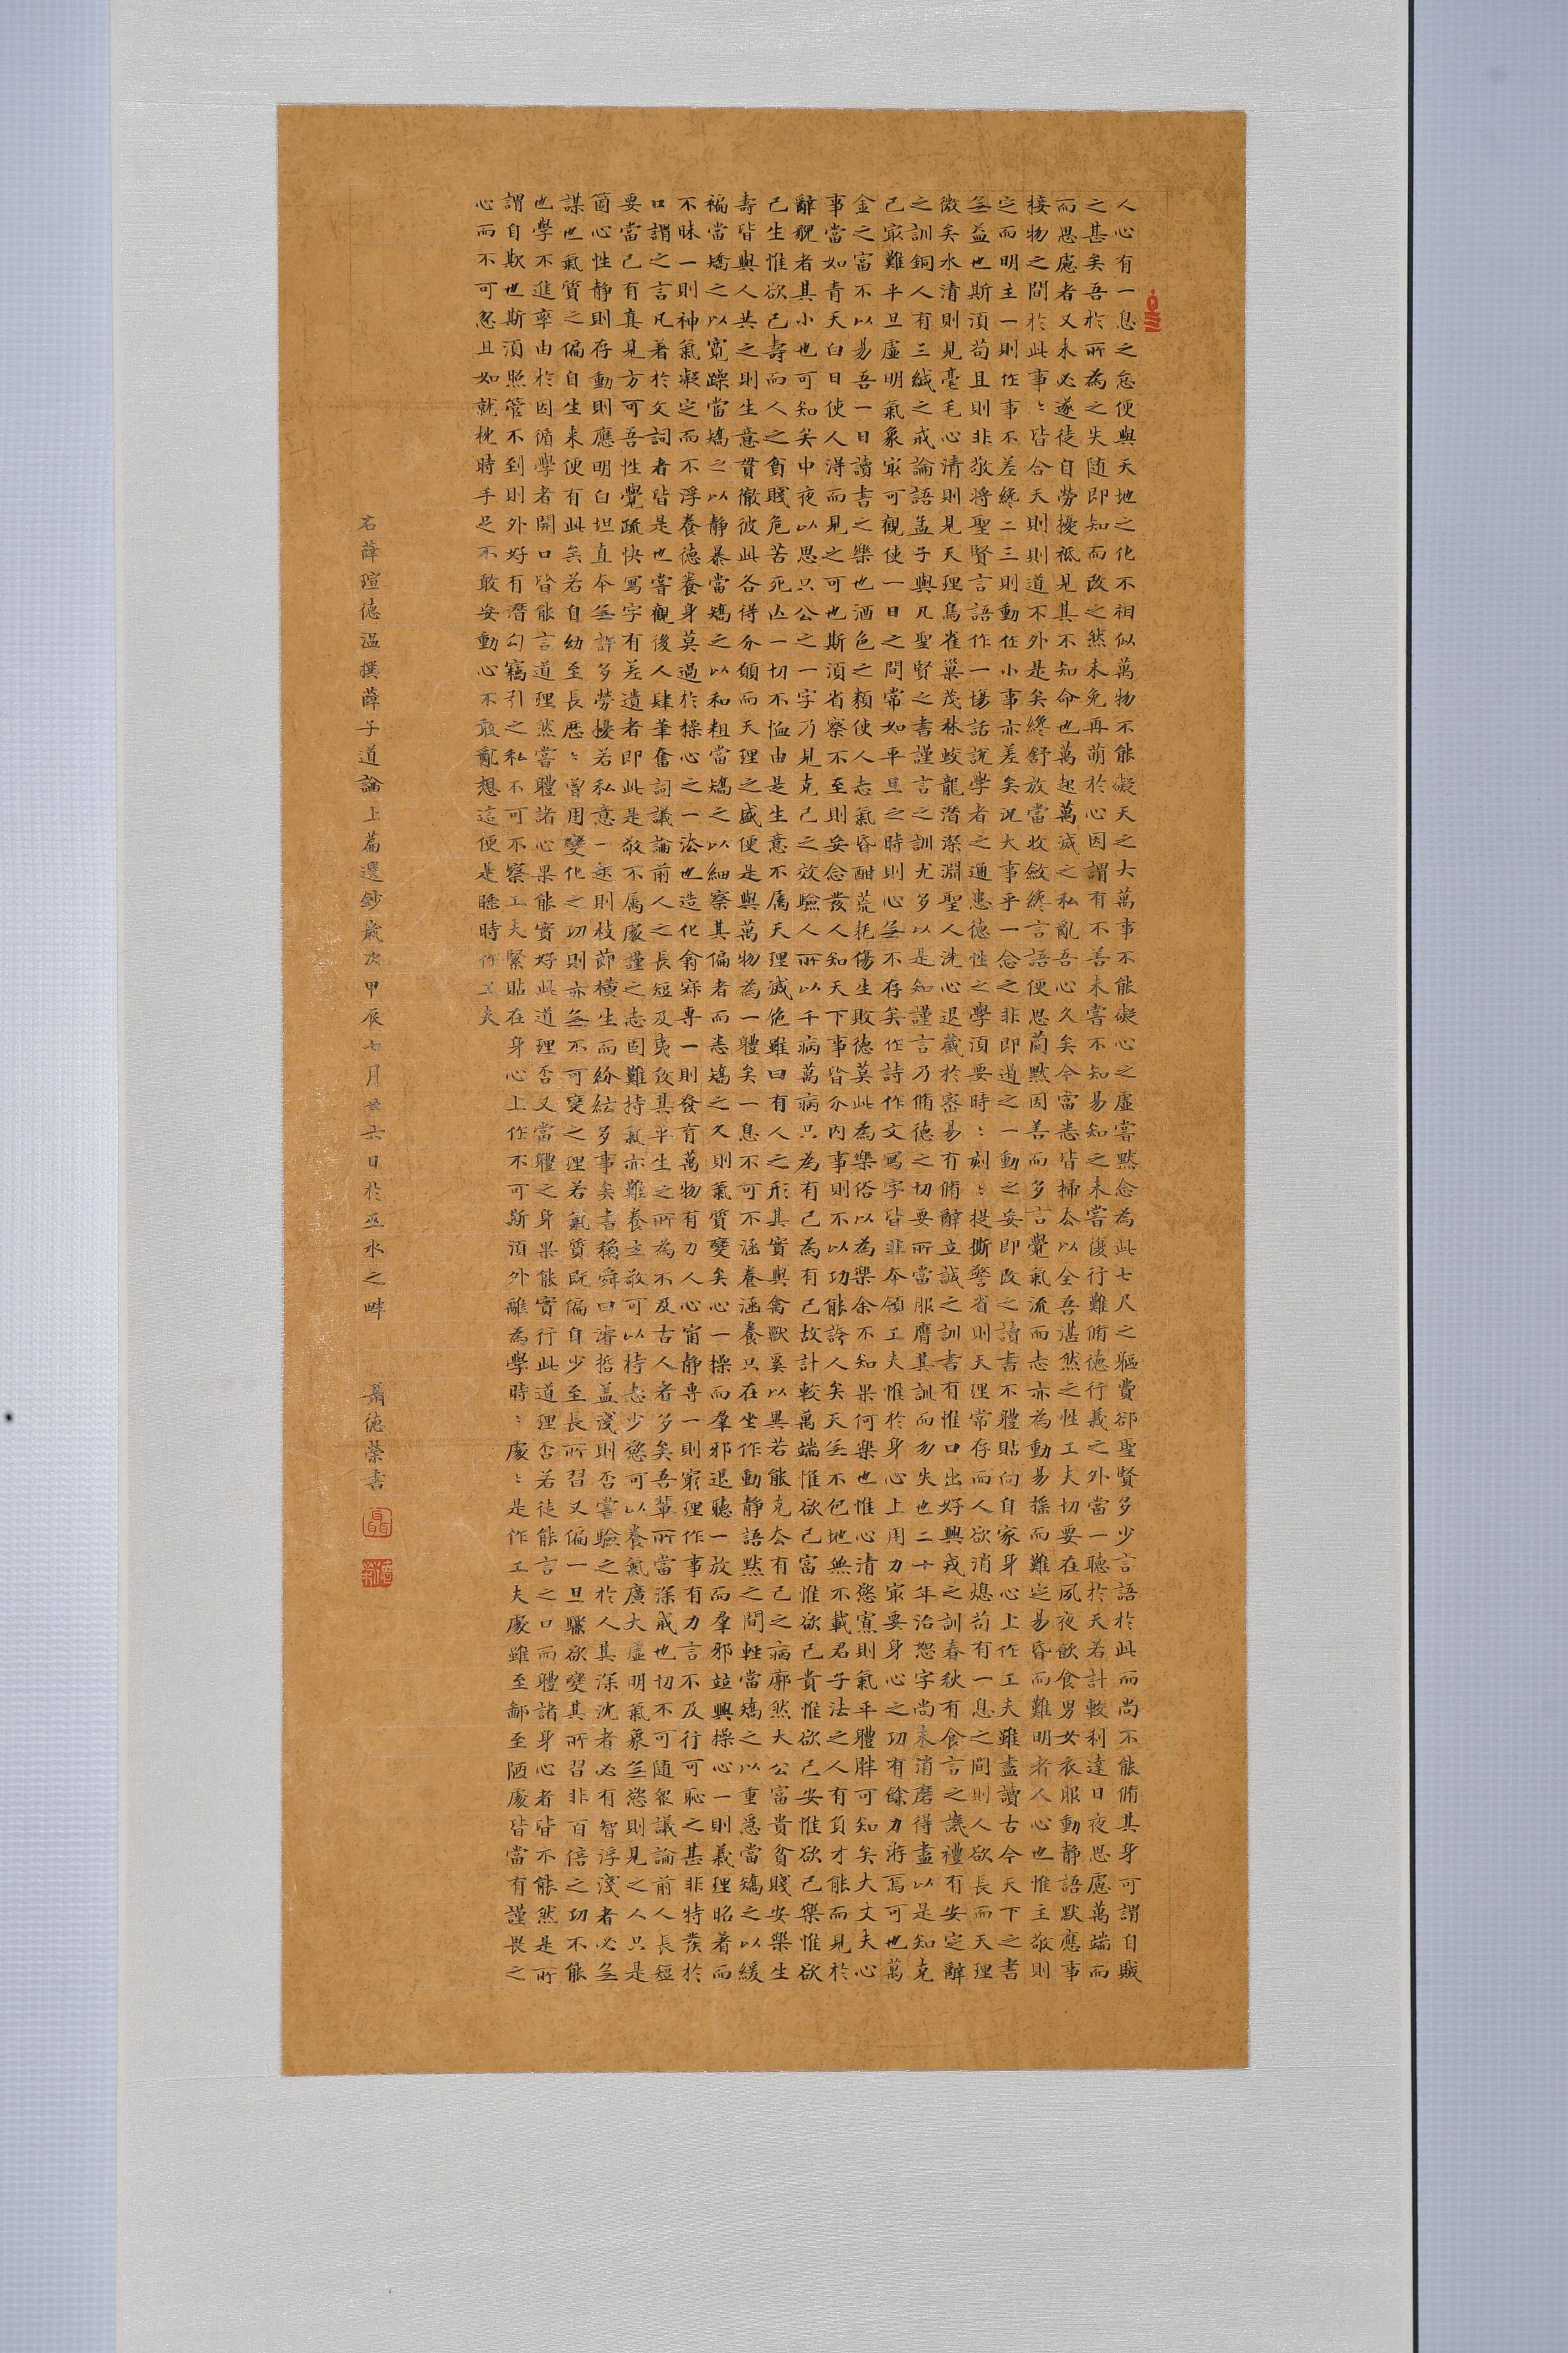 人心有一息之怠便與天地之化不相似萬物不能礙天之大萬事不能礙心之虛嘗默念為此七尺之軀費郤聖賢多少言語於此而尚不能脩其身可謂自賊
之甚矣吾於所為之失随即知而改之然未免再萌於心因謂有不善未嘗不知易知之未嘗復行難脩德行義之外當一聽於天若計較利達日夜思慮萬端而
而思慮者又未必遂徒自勞擾祗見其不知命也萬起萬滅之私亂吾心久矣今當悉皆掃去以全吾湛然之性工夫切要在夙夜飲食男女衣服動静語默應事
接物之間於此事〻皆合天則則道不外是矣纔舒放當收斂纔言語便思簡默因善而多言覺氣流而志亦為動易搖而難定易昏而難明者人心也惟主敬則
定而明主一則作事不差纔二三則動作小事亦差矣況大事乎一念之非即遏之一動之妄即改之讀書不體貼向自家身心上作工夫雖盡讀古今天下之書
無益也斯須苟且則非敬將聖賢言語作一場話說學者之通患德性之學須要時〻刻〻提撕警省則天理常存而人欲消熄苟有一息之間則人欲長而天理
微矣水清則見毫毛心清則見天理鳥雀巢茂林蛟龍潛深淵聖人洗心退藏於密易有脩辭立誠之訓書有惟口出好興戎之訓春秋有食言之譏禮有安定辭
之訓銅人有三緘之戒論語孟子與凡聖賢之書謹言之訓尤多以是知謹言乃脩德之切要所當服膺其訓而勿失也二十年治怒字尚未消磨得盡以是知克
己冣難平旦虛明氣象冣可觀使一日之間常如平旦之時則心無不存矣作詩作文寫字皆非本領工夫惟於身心上用力冣要身心之功有餘力游焉可也萬
金之富不以易吾一日讀書之樂也酒色之類使人志氣昏酣荒耗傷生敗德莫此為樂俗以為樂余不知果何樂也惟心清慾寡則氣平體胖可知矣大丈夫心
事當如青天白日使人得而見之可也斯須省察不至則妄念發人知天下事皆分內事則不以功能誇人矣天無不包地無不載君子法之人有負才能而見於
辭貌者其小也可知矣中夜以思只公之一字乃見克己之效驗人所以千病萬病只為有己為有己故計較萬端惟欲己富惟欲己貴惟欲己安惟欲己樂惟欲
己生惟欲己壽而人之貧賤危苦死亡一切不恤由是生意不屬天理滅絶雖曰有人之形其實與禽獸奚以異若能克去有己之病廓然大公富貴貧賤安樂生
壽皆與人共之則生意貫徹彼此各得分願而天理之盛便是與萬物為一體矣一息不可不涵養涵養只在坐作動静語默之間輕當矯之以重急當矯之以緩
褊當矯之以寬躁當矯之以静暴當矯之以和粗當矯之以細察其偏者而悉矯之久則氣質變矣心一操而羣邪退聽一放而羣邪竝興操心一則義理昭著而
不昧一則神氣凝定而不浮養德養身莫過於操心之一法也造化翕寂專一則發育萬物有力人心甯静專一則窮理作事有力言不及行可恥之甚非特發於
口謂之言凡著於文詞者皆是也嘗觀後人肆筆奮詞議論前人之長短及夷攷其平生之所為不及古人者多矣吾輩所當深戒也切不可随衆議論前人長短
要當己有真見方可吾性覺疏快寫字有差遺者即此是敬不屬處謹之志固難持氣亦難養主敬可以持志少慾可以養氣廣大虛明氣象無慾則見之人只是
箇心性静則存動則應明白坦直本無許多勞擾若私意一起則枝節橫生而紛紜多事矣書稱舜曰濬哲盖淺則否嘗驗之於人其深沈者必有智浮淺者必無
謀也氣質之偏自生来便有此矣若自幼至長歷〻曾用變化之功則亦無不可變之理若氣質既偏自少至長所習又偏一旦驟欲變其所習非百倍之功不能
也學不進率由於因循學者開口皆能言道理然嘗體諸心果能實好此道理否又當體之身果能實行此道理否若徒能言之口而體諸身心者皆不能然是所
謂自欺也斯須照管不到則外好有潛勾竊引之私不可不察工夫緊貼在身心上作不可斯須外離為學時〻處〻是作工夫處雖至鄙至陋處皆當有謹畏之
心而不可忽且如就枕時手足不敢妄動心不敢亂想這便是睡時作工夫
右薛瑄德溫撰薛子道論上篇選鈔歲次甲辰七月廿六日於巫水之畔 聶德榮書